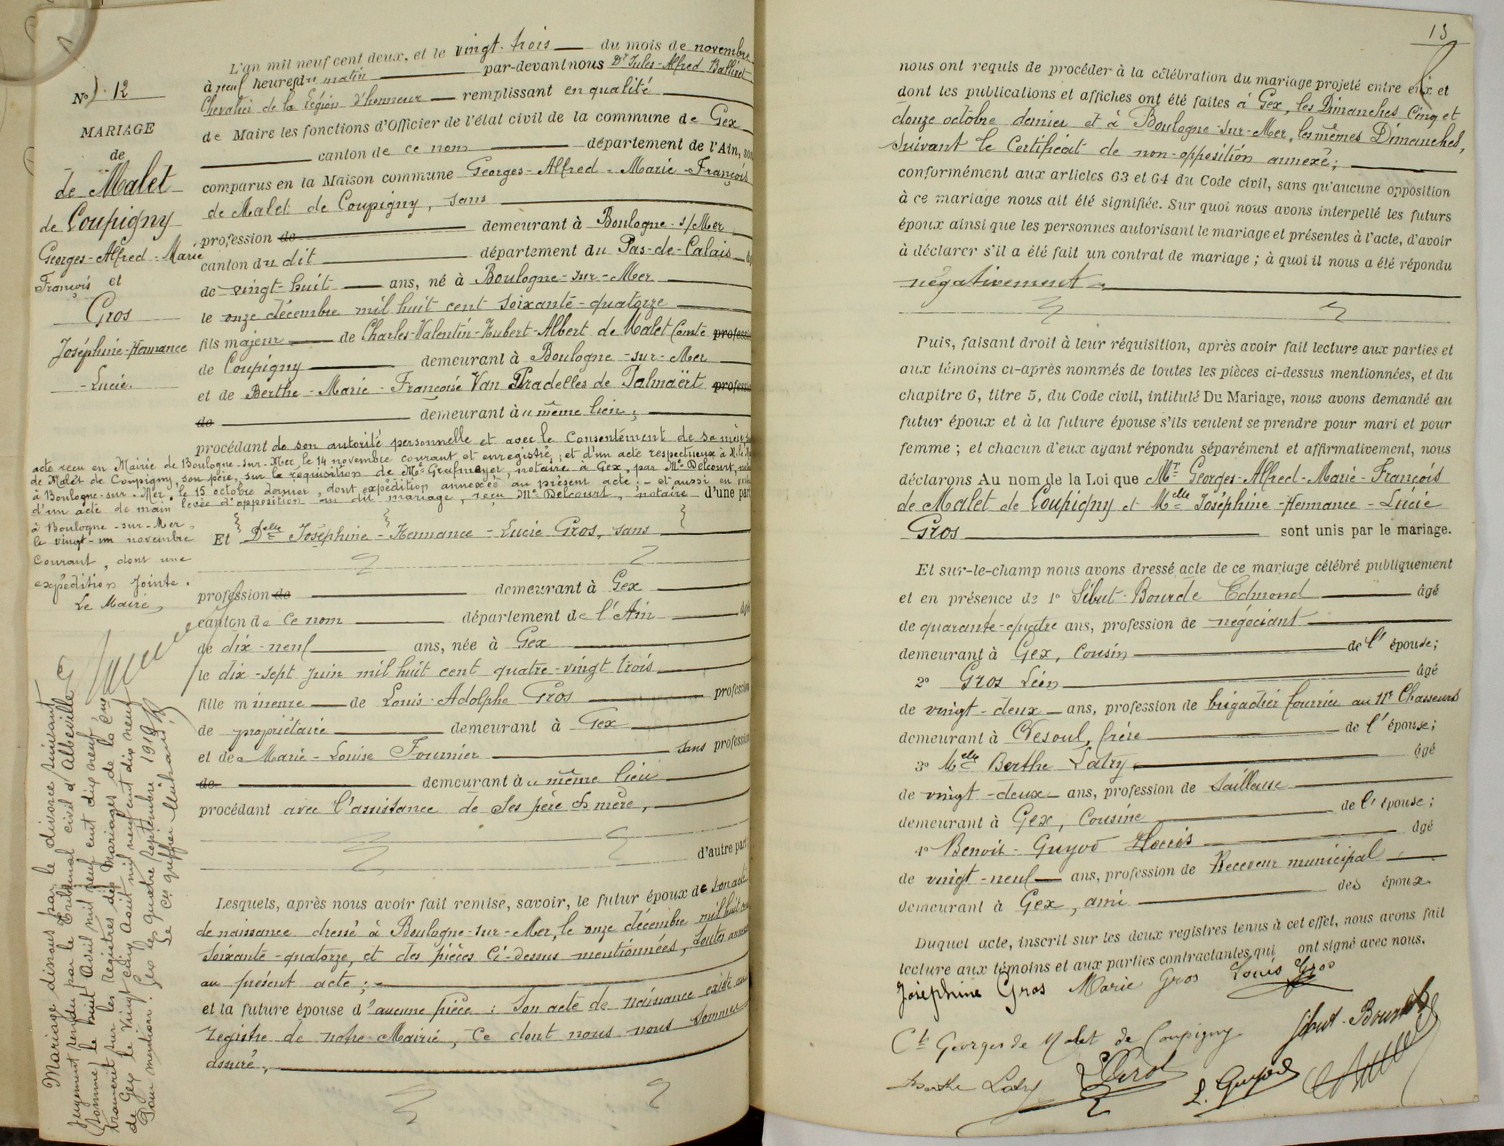 N° 12
MARIAGE
de
de Malet
de Coupigny
Georges-Alfred-Marie
François et
Gros
Joséphine-Hermance
-Lucie.
L'an mil neuf cent deux, et le vingt-trois du mois de novembre
à neuf heures du matin par-devant nous Dr Jules-Alfred
Chevalier de la Légion d'honneur remplissant en qualité
de Maire les fonctions d'Officier de l'état civil de la commune de Gex
canton de ce nom département de l'Ain, son
comparus en la Maison commune Georges-Alfred-Marie-François
de Malet de Coupigny, sans
profession de demeurant à Boulogne-s/Mer
canton du dit département du Pas-de-Calais
de vingt-huit ans, né à Boulogne-sur-Mer
le onze décembre mil huit cent soixante-quatorze
fils majeur de Charles-Valentin-Hubert-Albert de Malet Comte profession
de Coupigny demeurant à Boulogne-sur-Mer
et de Berthe-Marie-Françoise Van Pradelles de Palmaërt profession
de demeurant au même lieu;
procédant de son autorité personnelle et avec le Consentement de sa mère,
acte reçu en Mairie de Boulogne-sur-Mer le 14 novembre courant et enregistré; et d'un acte respectueux à M. le
de Malet de Coupigny, son père, sur la réquisition de Me notaire à Gex, par Me Delcourt,
à Boulogne-sur-Mer, le 15 octobre dernier, dont expédition annexée au présent acte; - et aussi en
d'un acte de main levée d'opposition du mariage, reçu Me Delcourt, notaire d'une part
à Boulogne-sur-Mer,
le vingt-un novembre
courant, dont une
expédition jointe.
Le Maire,
Et Delle Joséphine-Hermance-Lucie Gros, sans
profession de demeurant à Gex
canton de ce nom département de l'Ain âgé
de dix-neuf ans, née à Gex
le dix-sept juin mil huit cent quatre-vingt trois
fille mineure de Louis-Adolphe Gros profession
de propriétaire demeurant à Gex
et de Marie-Louise Fournier sans profession
de demeurant au même lieu
procédant avec l'assistance de ses père & mère,
d'autre part
Lesquels, après nous avoir fait remise, savoir, le futur époux de son acte
de naissance dressé à Boulogne-sur-Mer, le onze décembre mil huit cent
soixante-quatorze, et des pièces ci-dessus mentionnées, toutes
au présent acte;
et la future épouse d'aucune pièce: son acte de naissance existe
registre de notre Mairie, ce dont nous nous sommes
assuré,
Mariage dissous par le divorce suivant
jugement rendu par le Tribunal civil d'Abbeville
(Somme) le huit Avril mil neuf cent dix neuf
transcrit sur les Registres des Mariages de la Cne
de Gex le vingt cinq Août mil neuf cent dix neuf
Pour mention: Gex le quatre septembre 1919
Le Cis greffier
13
nous ont requis de procéder à la célébration du mariage projeté entre eux et
dont les publications et affiches ont été faites à Gex, les Dimanches Cinq et
douze octobre dernier et à Boulogne-sur-Mer, les mêmes Dimanches,
suivant le Certificat de non-opposition annexé;
conformément aux articles 63 et 64 du Code civil, sans qu'aucune opposition
à ce mariage nous ait été signifiée. Sur quoi nous avons interpellé les futurs
époux ainsi que les personnes autorisant le mariage et présentes à l'acte, d'avoir
à déclarer s'il a été fait un contrat de mariage; à quoi il nous a été répondu
négativement
Puis, faisant droit à leur réquisition, après avoir fait lecture aux parties et
aux témoins ci-après nommés de toutes les pièces ci-dessus mentionnées, et du
chapitre 6, titre 5, du Code civil, intitulé Du Mariage, nous avons demandé au
futur époux et à la future épouse s'ils veulent se prendre pour mari et pour
femme; et chacun d'eux ayant répondu séparément et affirmativement, nous
déclarons Au nom de la Loi que Mr Georges-Alfred-Marie-François
de Malet de Coupigny et Melle Joséphine-Hermance-Lucie
Gros sont unis par le mariage.
Et sur-le-champ nous avons dressé acte de ce mariage célébré publiquement
et en présence de 1° Sibut-Bourde Edmond âgé
de quarante-quatre ans, profession de négociant
demeurant à Gex, cousin de l'épouse;
2° Gros Léon âgé
de vingt-deux ans, profession de brigadier fourrier au 11e Chasseurs
demeurant à Vesoul, frère de l'épouse;
3° Melle Berthe Latry âgé
de vingt-deux ans, profession de tailleuse
demeurant à Gex, Cousine de l'épouse;
4° Benoit-Guyod âgé
de vingt-neuf ans, profession de Receveur municipal
demeurant à Gex, ami des époux.
Duquel acte, inscrit sur les deux registres tenus à cet effet, nous avons fait
lecture aux témoins et aux parties contractantes qui ont signé avec nous.
Joséphine Gros Marie Gros Louis Gros
Cte Georges de Malet de Coupigny Sibut-Bourde
Berthe Latry L Gros L. Guyod